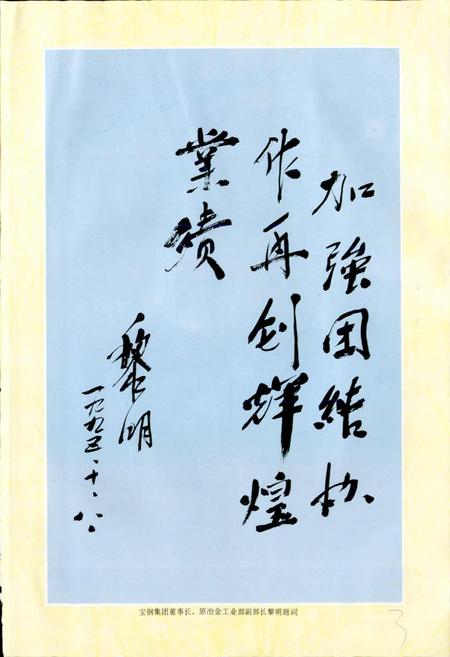 加強团结协
作再创辉煌
業绩
黎明
一九九五、十、八、
宝钢集团董事长、原冶金工业部副部长黎明题词
3